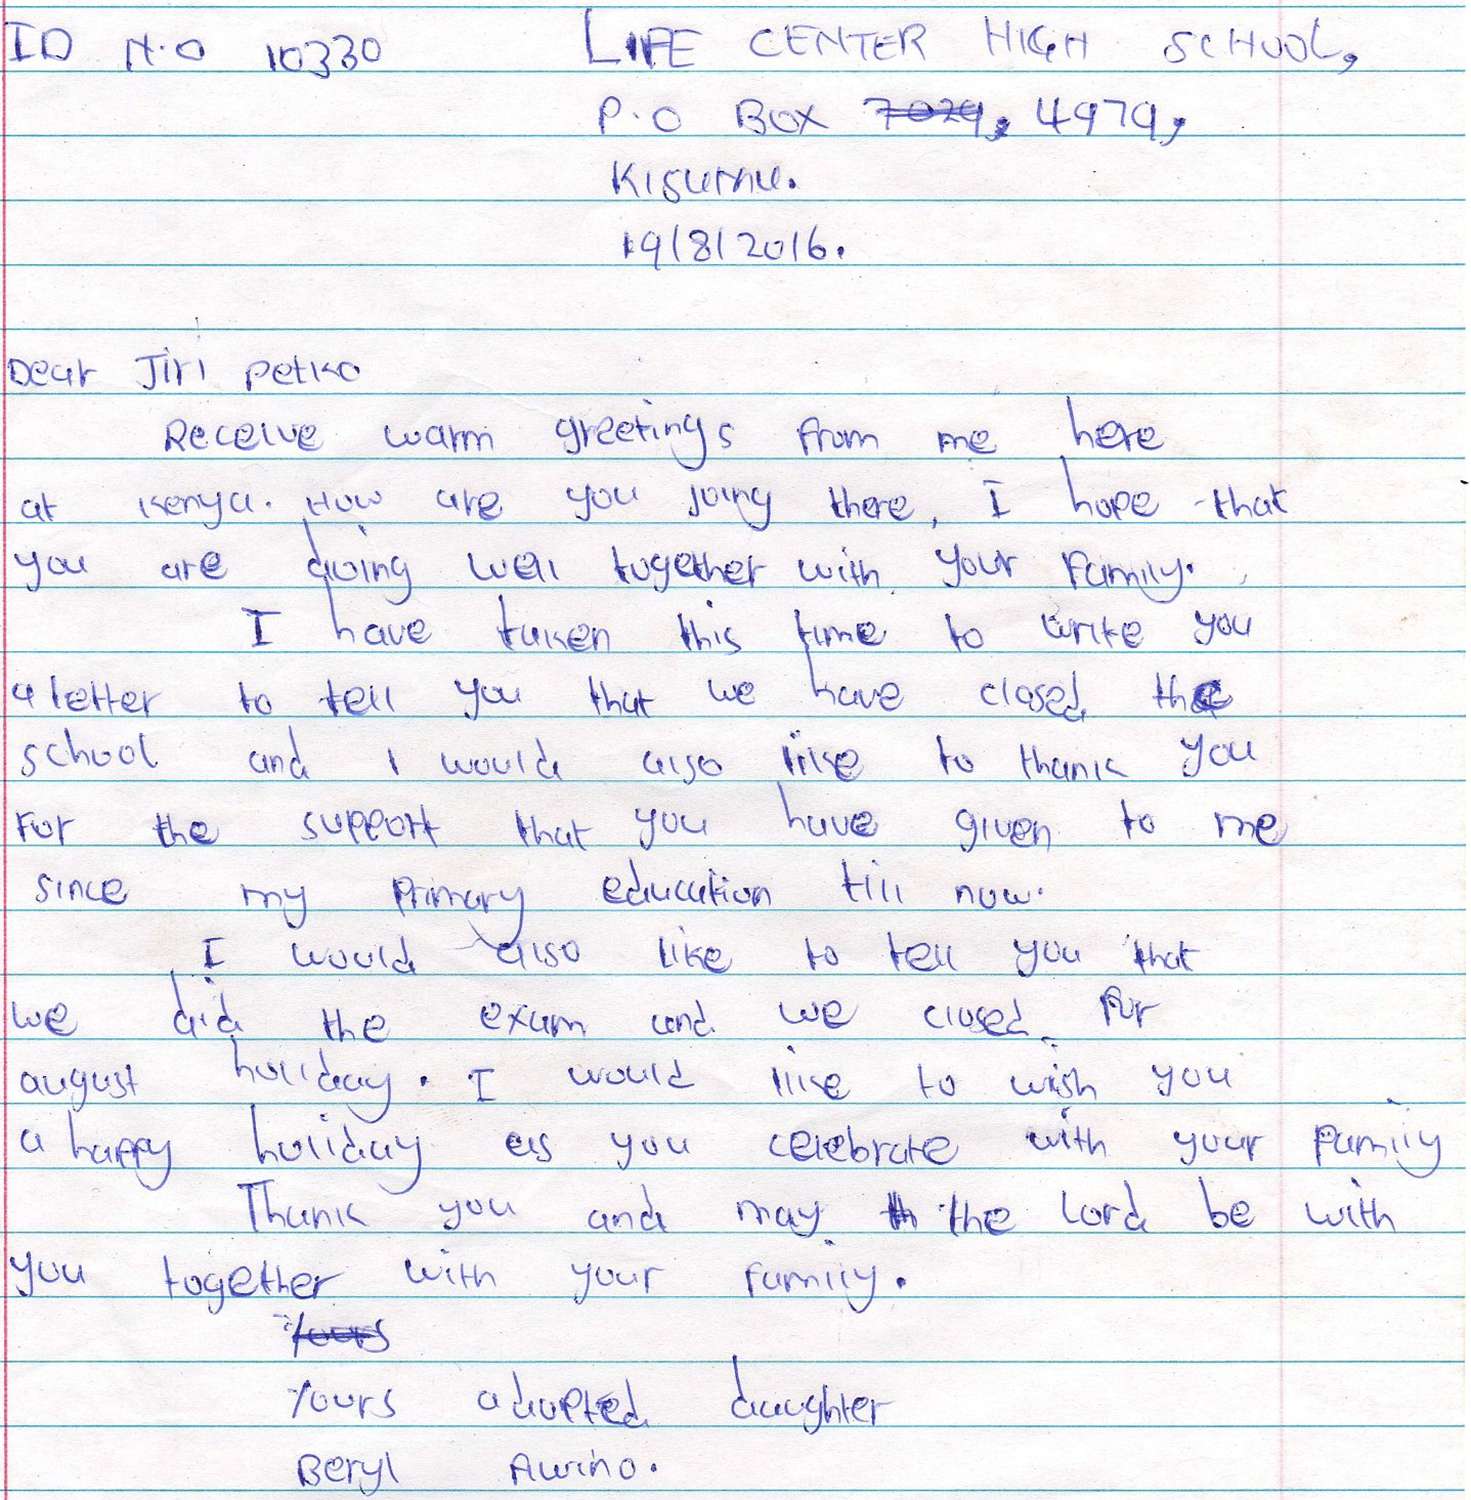 ID N.O 10330 LIFE CENTER HIGH SCHOOL,
P.O BOX 7029, 4979,
Kisumu.
19/8/2016.
Dear Jiri Petko
Receive warm greetings from me here
at Kenya. How are you joing there, I hope that
you are doing well together with your family.
I have taken this time to write you
a letter to tell you that we have closed the
school and I would also like to thank you
For the support that you have given to me
since my primary education till now.
I would also like to tell you that
we did the exam and we closed for
august holiday. I would like to wish you
a happy holiday as you celebrate with your family
Thank you and may th the Lord be with
you together with your family.
Yours
Yours adopted daughter
Beryl Awino.